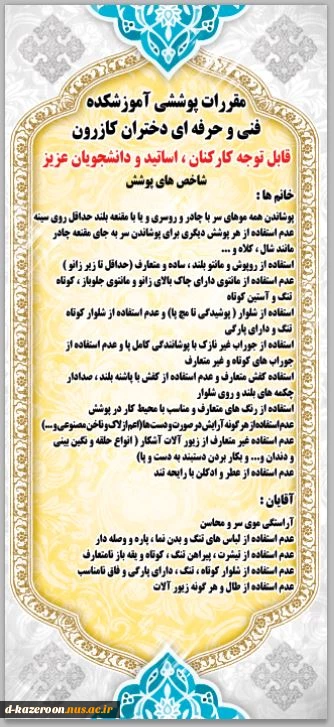 مقررات پوششی آموزشکده
فنی و حرفه ای دختران کازرون
قابل توجه کارکنان ، اساتید و دانشجویان عزیز
شاخص های پوشش
خانم ها :
پوشاندن همه موهای سر با چادر و روسری و یا با مقنعه بلند حداقل روی سینه
عدم استفاده از هر پوشش دیگری برای پوشاندن سر به جای مقنعه چادر
مانند شال ، کلاه و ...
استفاده از روپوش و مانتو بلند ، ساده و متعارف (حداقل تا زیر زانو )
عدم استفاده از مانتوی دارای چاک بالای زانو و مانتوی جلوباز ، کوتاه
تنگ و آستین کوتاه
استفاده از شلوار ( پوشیدگی تا مچ پا) و عدم استفاده از شلوار کوتاه
تنگ و دارای پارگی
استفاده از جوراب غیر نازک با پوشانندگی کامل پا و عدم استفاده از
جوراب های کوتاه و غیر متعارف
استفاده کفش متعارف و عدم استفاده از کفش با پاشنه بلند ، صدادار
چکمه های بلند و روی شلوار
استفاده از رنگ های متعارف و مناسب با محیط کار در پوشش
عدم استفاده از هر گونه آرایش در صورت و دست ها (اعم از لاک و ناخن مصنوعی و...)
عدم استفاده غیر متعارف از زیور آلات آشکار ( انواع حلقه و نگین بینی
و دندان و... و بکار بردن دستبند به دست و پا)
عدم استفاده از عطر و ادکلن با رایحه تند
آقایان :
آراستگی موی سر و محاسن
عدم استفاده از لباس های تنگ و بدن نما ، پاره و وصله دار
عدم استفاده از تیشرت ، پیراهن تنگ ، کوتاه و یقه باز نامتعارف
عدم استفاده از شلوار کوتاه ، تنگ ، دارای پارگی و فاق نامناسب
عدم استفاده از طلا و هر گونه زیور آلات
d-kazeroon.nus.ac.ir